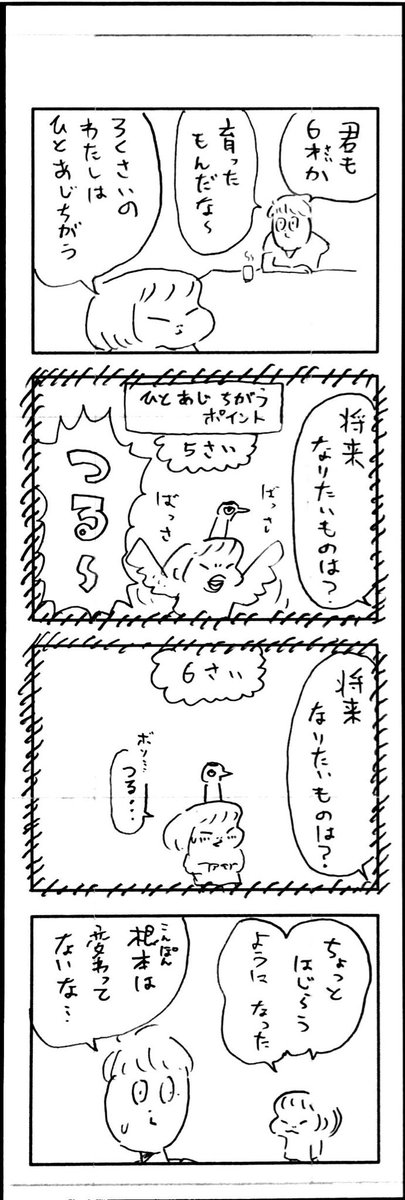 君も
6才か
さい
育った
もんだな〜
ろくさいの
わたしは
ひとあじちがう
ひとあじちがう
ポイント
将来
なりたいものは？
5さい
ばっさ
ばっさ
つる〜
将来
なりたいものは？
6さい
ボソ…
つる…
ちょっと
はじらう
ように なった
根本は
こんぽん
変わって
ないな…